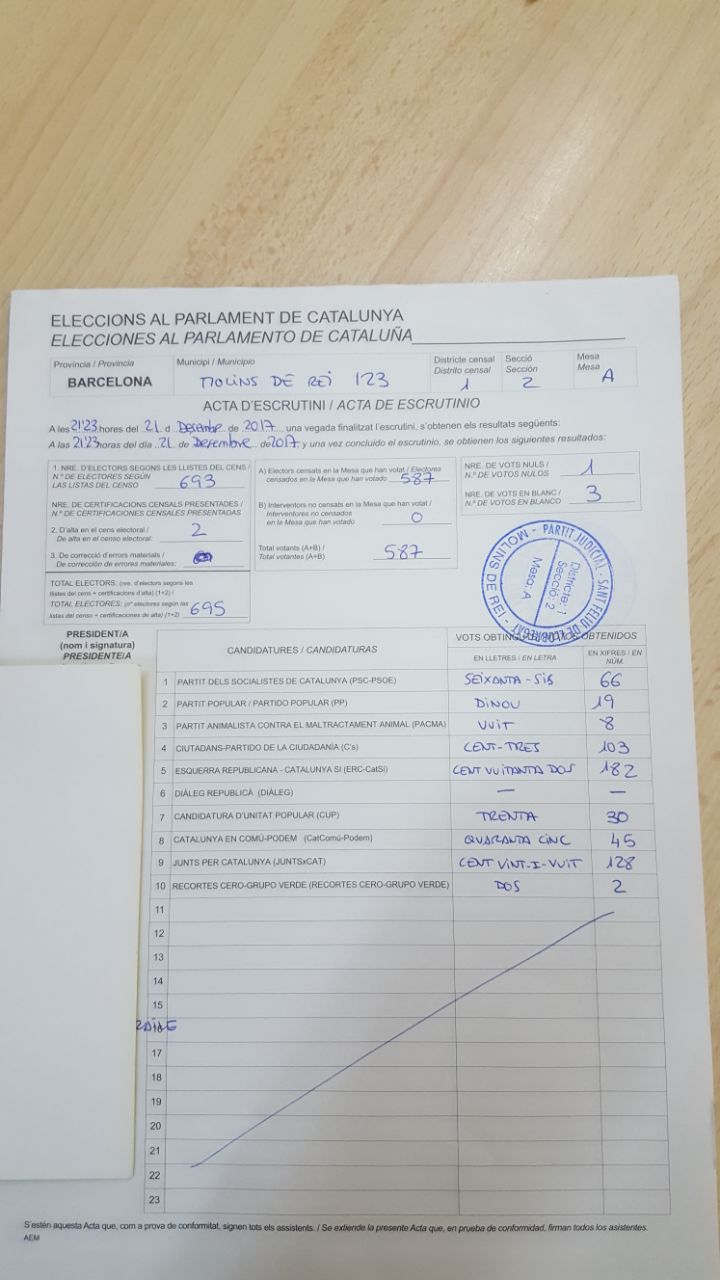 ELECCIONS AL PARLAMENT DE CATALUNYA
ELECCIONES AL PARLAMENTO DE CATALUÑA
Provincia / Provincia Municipi / Municipio Districte censal Distrito censal Secció Sección Mesa Mesa
BARCELONA MOLINS DE REI 123 1 2 A
ACTA D'ESCRUTINI / ACTA DE ESCRUTINIO
A les 21'23 hores del 21 d Desembre de 2017 una vegada finalitzat l'escrutini, s'obtenen els resultats següents:
A las 21'23 horas del día 21 de Desembre de 2017 y una vez concluido el escrutinio, se obtienen los siguientes resultados:
1. NRE. D'ELECTORS SEGONS LES LLISTES DEL CENS /
N.º DE ELECTORES SEGÚN
LAS LISTAS DEL CENSO 693
NRE. DE CERTIFICACIONS CENSALS PRESENTADES /
N.º DE CERTIFICACIONES CENSALES PRESENTADAS
2. D'alta en el cens electoral /
De alta en el censo electoral: 2
3. De correcció d'errors materials /
De corrección de errores materiales:
TOTAL ELECTORS: (nre. d'electors segons les
llistes del cens + certificacions d'alta) (1+2) /
TOTAL ELECTORES: (nº electores según las
listas del censo + certificaciones de alta) (1+2) 695
A) Electors censats en la Mesa que han votat / Electores
censados en la Mesa que han votado 587
B) Interventors no censats en la Mesa que han votat /
Interventores no censados
en la Mesa que han votado 0
Total votants (A+B) /
Total votantes (A+B) 587
NRE. DE VOTS NULS /
N.º DE VOTOS NULOS 1
NRE. DE VOTS EN BLANC /
N.º DE VOTOS EN BLANCO 3
PARTIT JUDICIAL - SANT FELIU DE LLOBREGAT
MOLINS DE REI
Districte: 1
Secció: 2
Mesa: A
PRESIDENT/A
(nom i signatura)
PRESIDENTE/A
CANDIDATURES / CANDIDATURAS VOTS OBTINGUTS OBTENIDOS
EN LLETRES / EN LETRA EN XIFRES / EN NÚM.
1 PARTIT DELS SOCIALISTES DE CATALUNYA (PSC-PSOE) SEIXANTA-SIS 66
2 PARTIT POPULAR / PARTIDO POPULAR (PP) DINOU 19
3 PARTIT ANIMALISTA CONTRA EL MALTRACTAMENT ANIMAL (PACMA) VUIT 8
4 CIUTADANS-PARTIDO DE LA CIUDADANÍA (C's) CENT-TRES 103
5 ESQUERRA REPUBLICANA - CATALUNYA SÍ (ERC-CatSí) CENT VUITANTA DOS 182
6 DIÀLEG REPUBLICÀ (DIÀLEG) — —
7 CANDIDATURA D'UNITAT POPULAR (CUP) TRENTA 30
8 CATALUNYA EN COMÚ-PODEM (CatComú-Podem) QUARANTA CINC 45
9 JUNTS PER CATALUNYA (JUNTSxCAT) CENT VINT-I-VUIT 128
10 RECORTES CERO-GRUPO VERDE (RECORTES CERO-GRUPO VERDE) DOS 2
11
12
13
14
15
16
17
18
19
20
21
22
23
S'estén aquesta Acta que, com a prova de conformitat, signen tots els assistents. / Se extiende la presente Acta que, en prueba de conformidad, firman todos los asistentes.
AEM